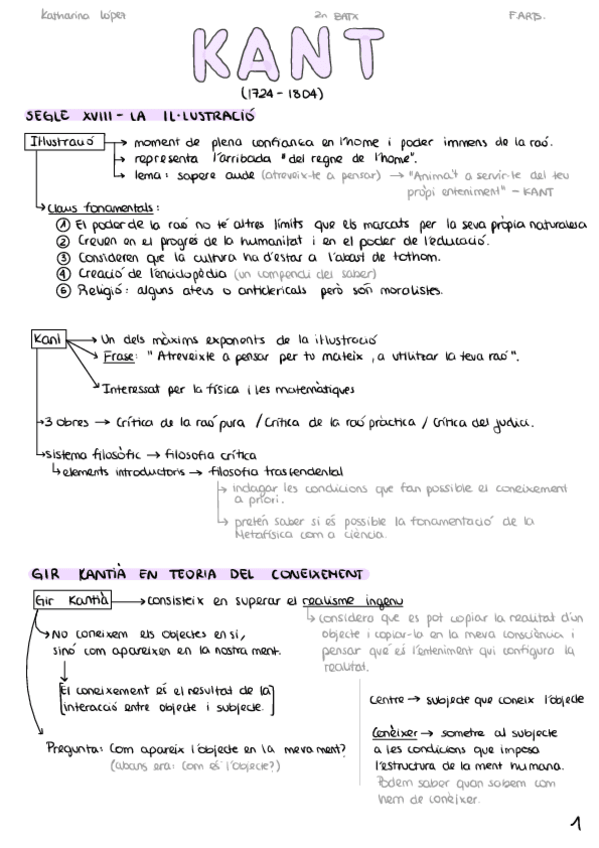 Katharina López 2n BATX F.ARTS.
KANT
(1724 - 1804)
SEGLE XVIII - LA IL·LUSTRACIÓ
Il·lustració → moment de plena confiança en l'home i poder immens de la raó.
→ representa l'arribada "del regne de l'home".
→ lema: sapere aude (atreveix-te a pensar) → "Anima't a servir-te del teu
propi enteniment" - KANT
→ Claus fonamentals:
① El poder de la raó no té altres límits que els marcats per la seva pròpia naturalesa
② Creuen en el progrés de la humanitat i en el poder de l'educació.
③ Consideren que la cultura ha d'estar a l'abast de tothom.
④ Creació de l'enciclopèdia (un compendi del saber)
⑤ Religió: alguns ateus o anticlericals però són moralistes.
Kant → Un dels màxims exponents de la il·lustració
→ Frase: "Atreveixte a pensar per tu mateix, a utilitzar la teva raó".
→ Interessat per la física i les matemàtiques
→ 3 obres → Crítica de la raó pura / Crítica de la raó pràctica / Crítica del judici.
→ sistema filosòfic → filosofia crítica
↳ elements introductoris → filosofia trascendental
↳ indagar les condicions que fan possible el coneixement
a priori.
↳ pretén saber si és possible la fonamentació de la
Metafísica com a ciència.
GIR KANTIÀ EN TEORIA DEL CONEIXEMENT
Gir Kantià → consisteix en superar el realisme ingenu
↳ considera que es pot copiar la realitat d'un
objecte i copiar-lo en la meva consciència i
pensar que és l'enteniment qui configura la
realitat.
→ No coneixem els objectes en si,
sinó com apareixen en la nostra ment.
↓
El coneixement és el resultat de la
interacció entre objecte i subjecte.
Pregunta: Com apareix l'objecte en la meva ment?
(abans era: Com és l'objecte?)
Centre → subjecte que coneix l'objecte
Conèixer → sometre al subjecte
a les condicions que imposa
l'estructura de la ment humana.
Podem saber quan sabem com
hem de conèixer.
1